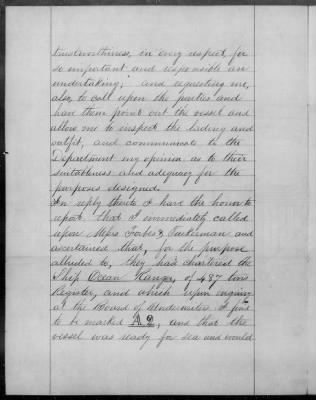 trustworthiness, in every respect, for
so important and responsible an
undertaking; and requesting me,
also, to call upon the parties and
have them point out the vessel and
allow me to inspect the lading and
outfit, and communicate to the
Department my opinion as to their
suitableness and adequacy for the
purposes designed.
In reply thereto I have the honor to
report that I immediately called
upon Messrs Forbes & Tuckerman and
ascertained that, for the purpose
alluded to, they had chartered the
Ship Ocean Ranger, of 487 tons
Register, and which upon enquiry
at the Board of Underwriters I find
to be marked A 2, and that the
vessel was ready for sea and would